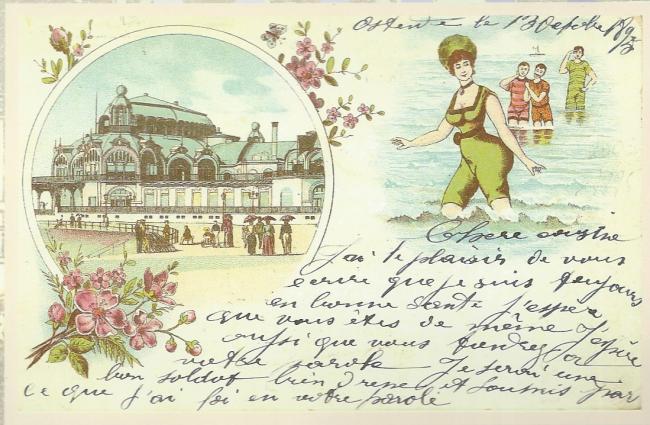 Ostende le 13 Octobre
Chere cousine
J'ai le plaisir de vous
ecrire que je suis toujours
en bonne sante j'espere
que vous êtes de même J'espère
aussi que vous tiendrez
votre parole Je serai une
bon soldat bien et soumis par
ce que j'ai foi en votre parole